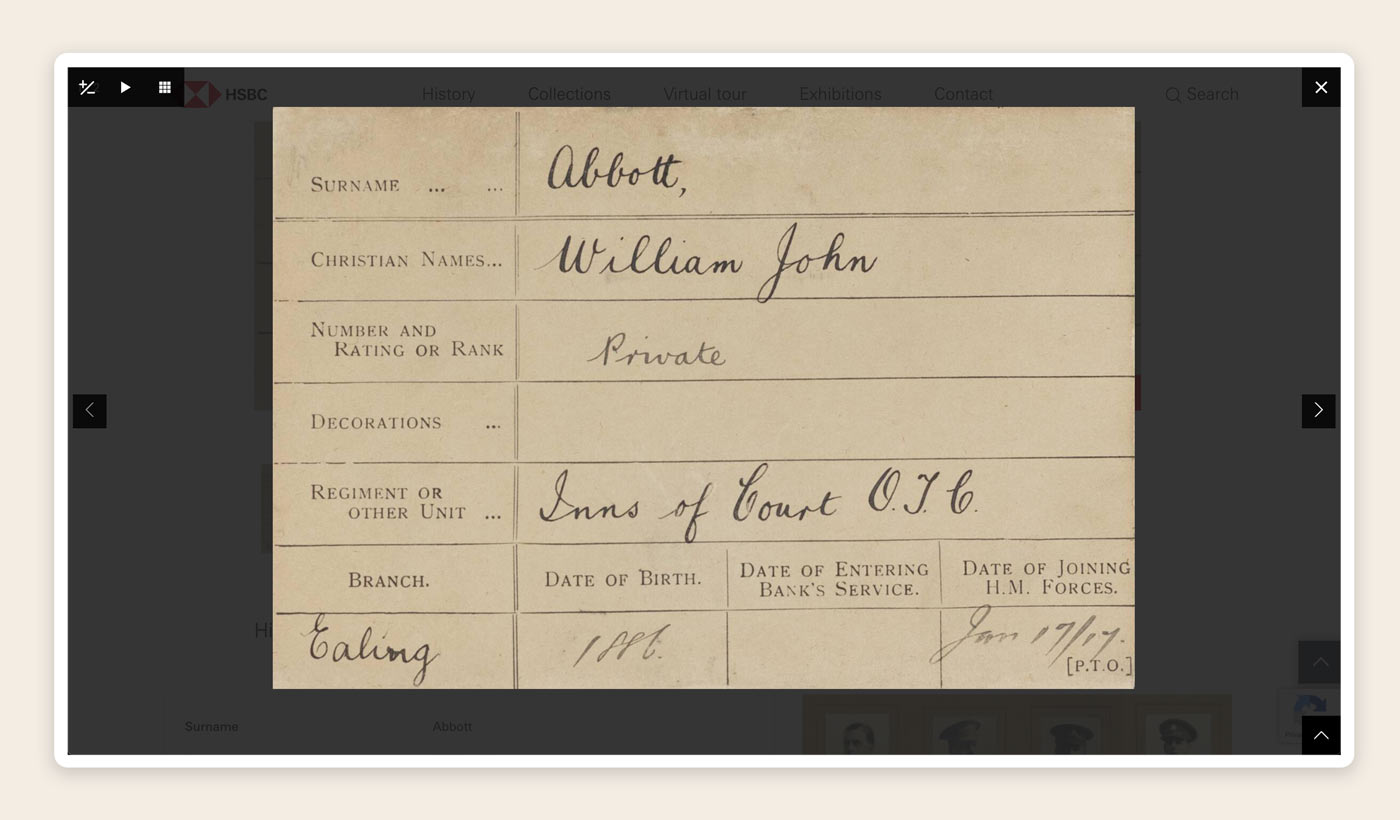 HSBC History Collections Virtual tour Exhibitions Contact Search
SURNAME ... ... Abbott,
CHRISTIAN NAMES... William John
NUMBER AND
RATING OR RANK Private
DECORATIONS ...
REGIMENT OR
OTHER UNIT ... Inns of Court O.T.C.
BRANCH. DATE OF BIRTH. DATE OF ENTERING
BANK'S SERVICE. DATE OF JOINING
H.M. FORCES.
Ealing 1886. Jan 17/17.
[P.T.O.]
Hi
Surname Abbott